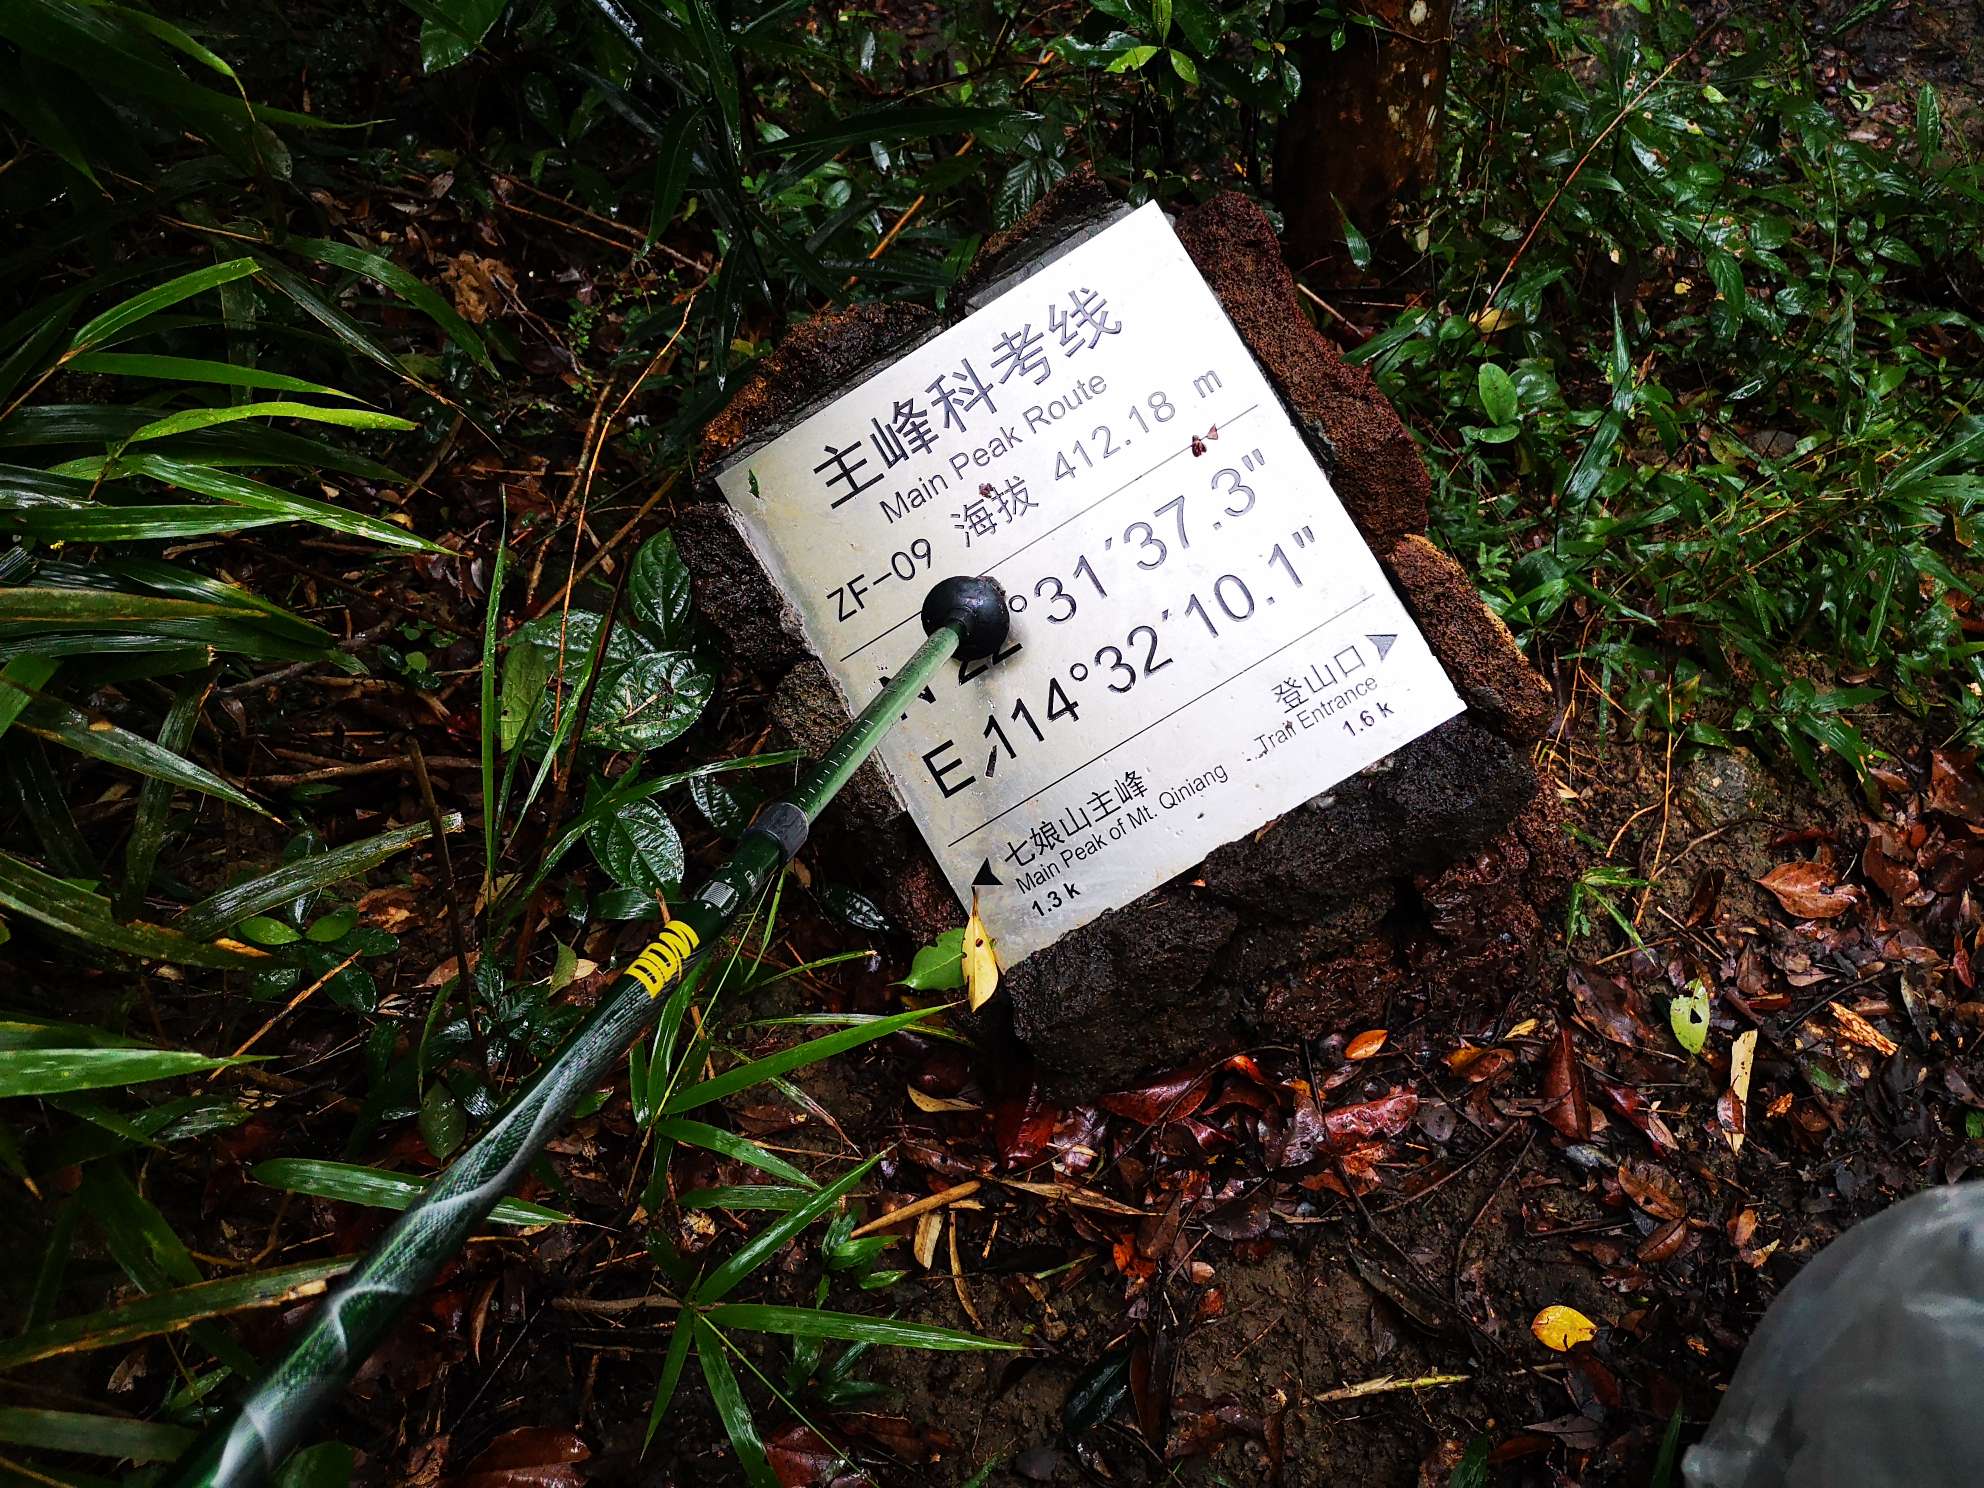 主峰科考线
Main Peak Route
ZF-09 海拔 412.18 m
N 22°31′37.3"
E 114°32′10.1"
登山口
Trail Entrance
1.6 k
七娘山主峰
Main Peak of Mt. Qiniang
1.3 k